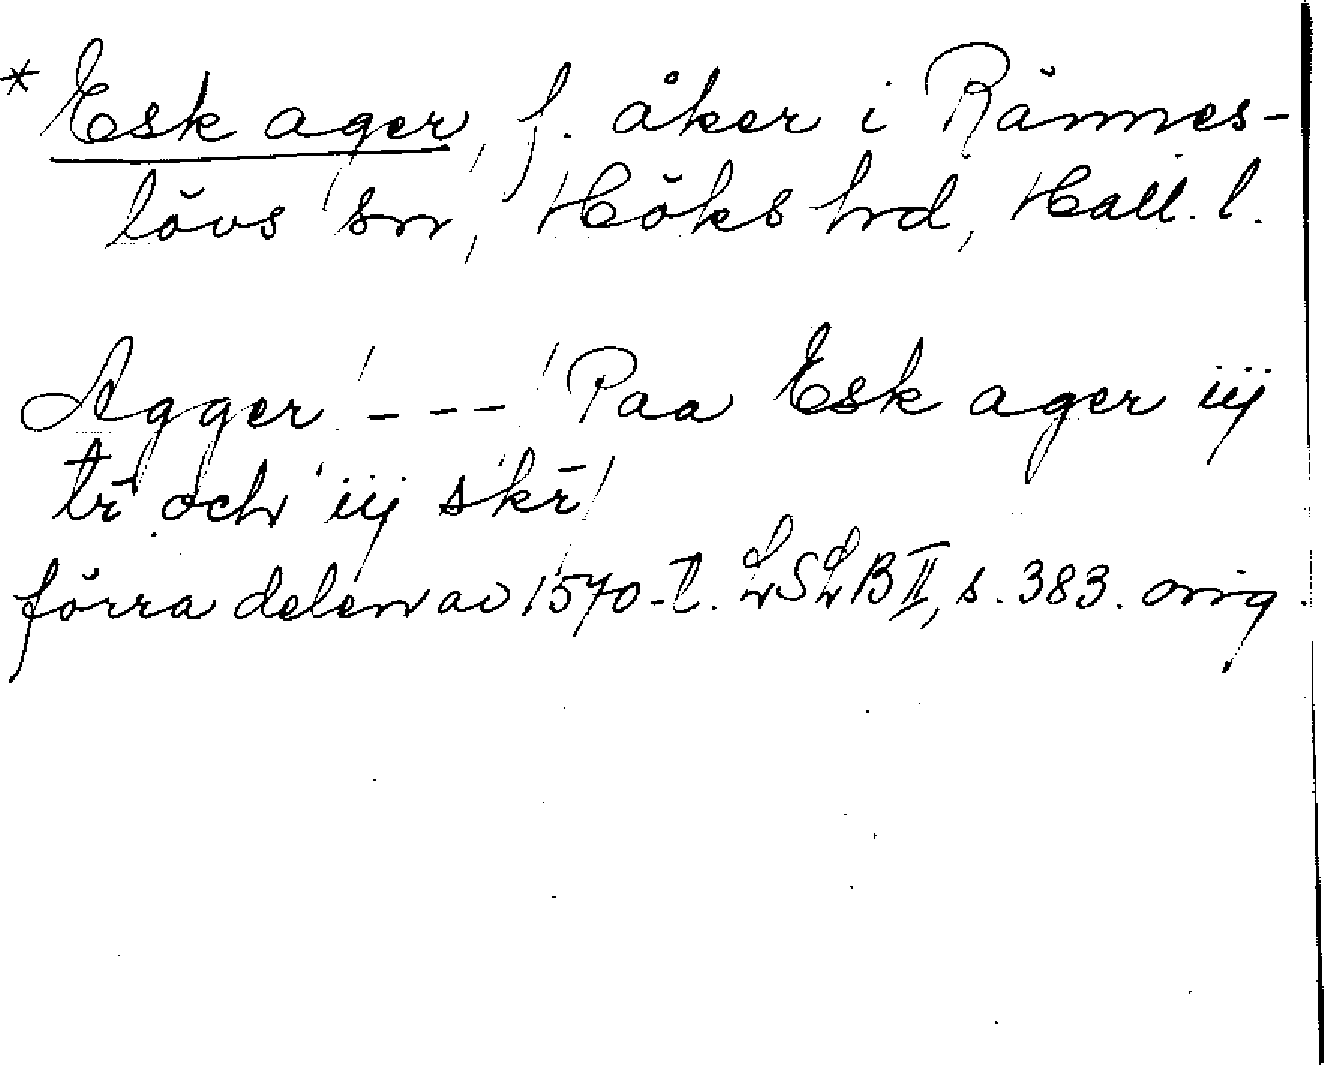 * Esk ager, f. åker i Rännes-
lövs sn, Höks hd, Hall. l.
Agger --- Paa Esk ager iij
tr̄ och iij skr̄
förra delen av 1570-t. LSLB II, s. 383. orig.